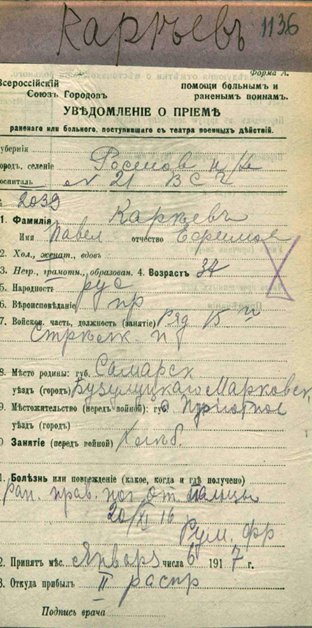 Карѣевъ 1136
Форма А.
Всероссійскій помощи больнымъ и
Союзъ Городовъ раненымъ воинамъ.
УВѢДОМЛЕНІЕ О ПРІЕМѢ
раненаго или больного, поступившаго съ театра военныхъ дѣйствій.
губернія
городъ, селеніе Ростовъ н/Д
госпиталь № 21 В С Г
2039
1. Фамилія Карѣевъ
Имя Павелъ отчество Ефремов
2. Хол., женат., вдовъ
3. Негр., грамотн., образован. 4. Возрастъ 34
5. Народность рус
6. Вѣроисповѣданіе пр
7. Войсков. часть, должность (занятіе) Ряд 15 го
Стрѣлк. п
8. Мѣсто родины: губ. Самарск
уѣздъ (городъ) Бузулуцкаго Марковск
9. Мѣстожительство (передъ войной): губ
уѣздъ (городъ)
0 Занятіе (передъ войной) Хлѣб.
1. Болѣзнь или поврежденіе (какое, когда и гдѣ получено)
Ран. прав. ног. от. пальцы
20/XI 16
Рум. фр
2. Принятъ мѣс. Января числа 6 191 7 г.
3. Откуда прибылъ II распр
Подпись врача